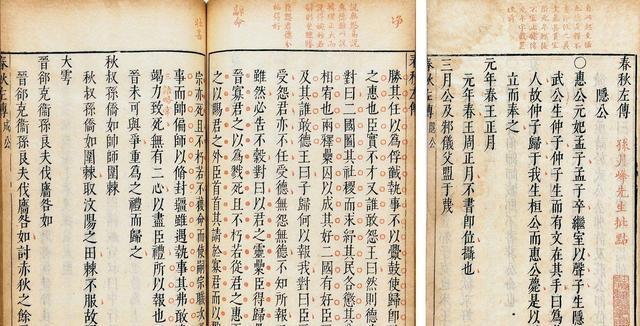 春秋左傳
隱公
孫月峰先生批點
○惠公元妃孟子孟子卒繼室以聲子生隱
武公生仲子仲子生而有文在其手曰為
人故仲子歸于我生桓公而惠公薨是以
立而奉之
元年春王正月
元年春王周正月不書即位攝也
三月公及邾儀父盟于蔑
春秋左傳 隱公
春秋左傳
勝其任以為俘馘執事不以釁鼓使歸即
之惠也臣實不才又誰敢怨王曰然則德
對曰二國圖其社稷而求紓其民各懲其
相宥也兩釋纍囚以成其好二國有好臣
及其誰敢德王曰子歸何以報我對曰臣
受怨君亦不任受德無怨無德不知所報
雖然必告不穀對曰以君之靈纍臣得歸
晉寡君之以為戮死且不朽若從君之惠
之以賜君之外臣首首其請於寡君而以
宗亦死且不朽若不獲命而使嗣宗職次
事而帥偏師以修封疆雖遇執事其弗敢
竭力致死無有二心以盡臣禮所以報也
晉未可與爭重為之禮而歸之
秋叔孫僑如帥師圍棘
秋叔孫僑如圍棘取汶陽之田棘不服故
大雩
晉郤克衛孫良夫伐廧咎如
晉郤克衛孫良夫伐廧咎如討赤狄之餘
春秋左傳 成公